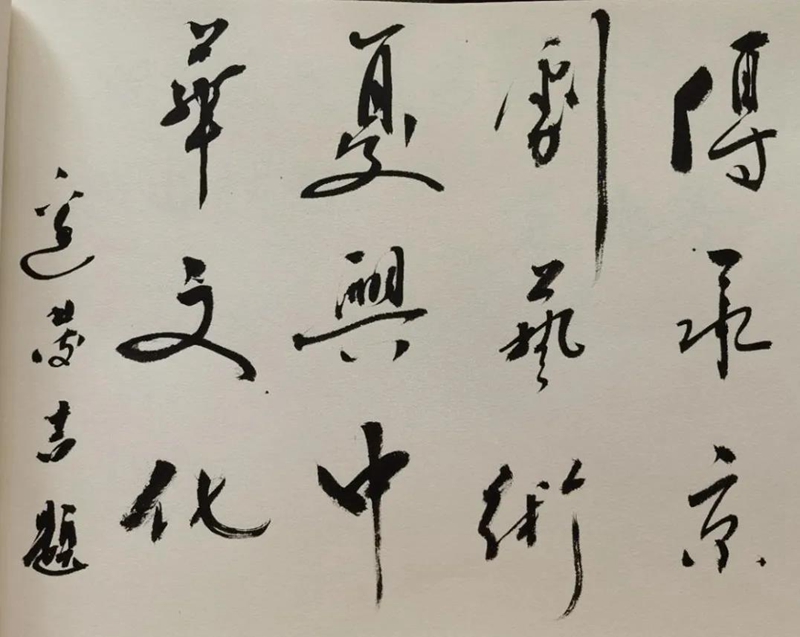 傳承京
劇藝術
复興中
華文化
吉題